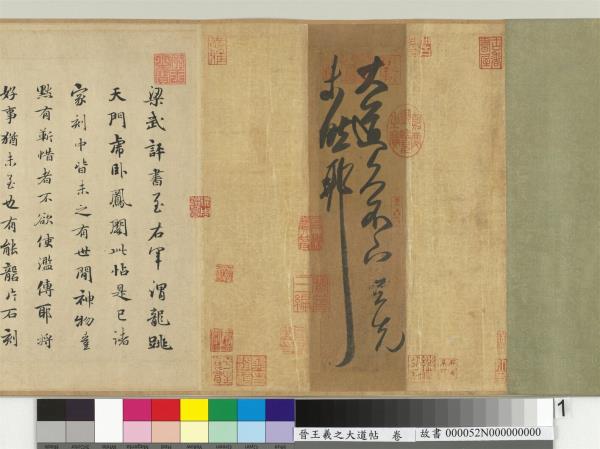 大道久不下与先
未然耶
梁武評書至右軍謂龍跳
天門虎卧鳳閣此帖是已諸
家刻中皆未之有世間神物
黙有靳惜者不欲使濫傳耶將
好事猶未至也有能礱片石刻
1
晉王羲之大道帖 卷 故書 000052N000000000